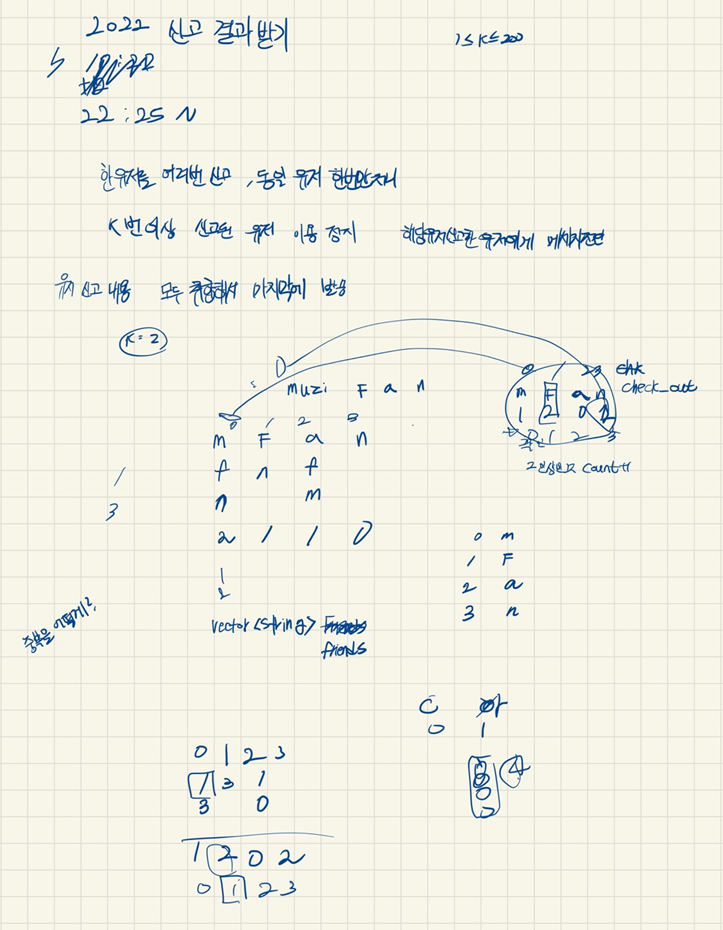 2022 신고 결과 받기
1 ≤ K ≤ 200
22 : 25 N
한 유저를 여러번 신고 , 동일 유저 한번만 처리
K번 이상 신고된 유저 이용 정지 해당 유저 신고한 유저에게 메시지 전달
유저 신고 내용 모두 취합해서 마지막에 발송
K = 2
0 1 2 3
muzi F a n
check_out
m F a n
1 2 0 2
0 1 2 3
2 이상인지 count++
0 1 2 3
m F a n
f n f
n m
2 1 1 0
1
3
1
2
0 m
1 F
2 a
3 n
중복을 어떻게?
vector <string>
friends
C
0 1
4
0 1 2 3
1 3 1
3 0
1 2 0 2
0 1 2 3